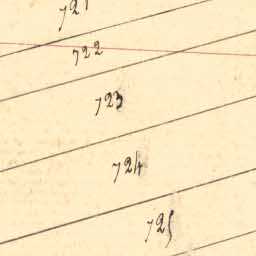 721
722
723
724
725